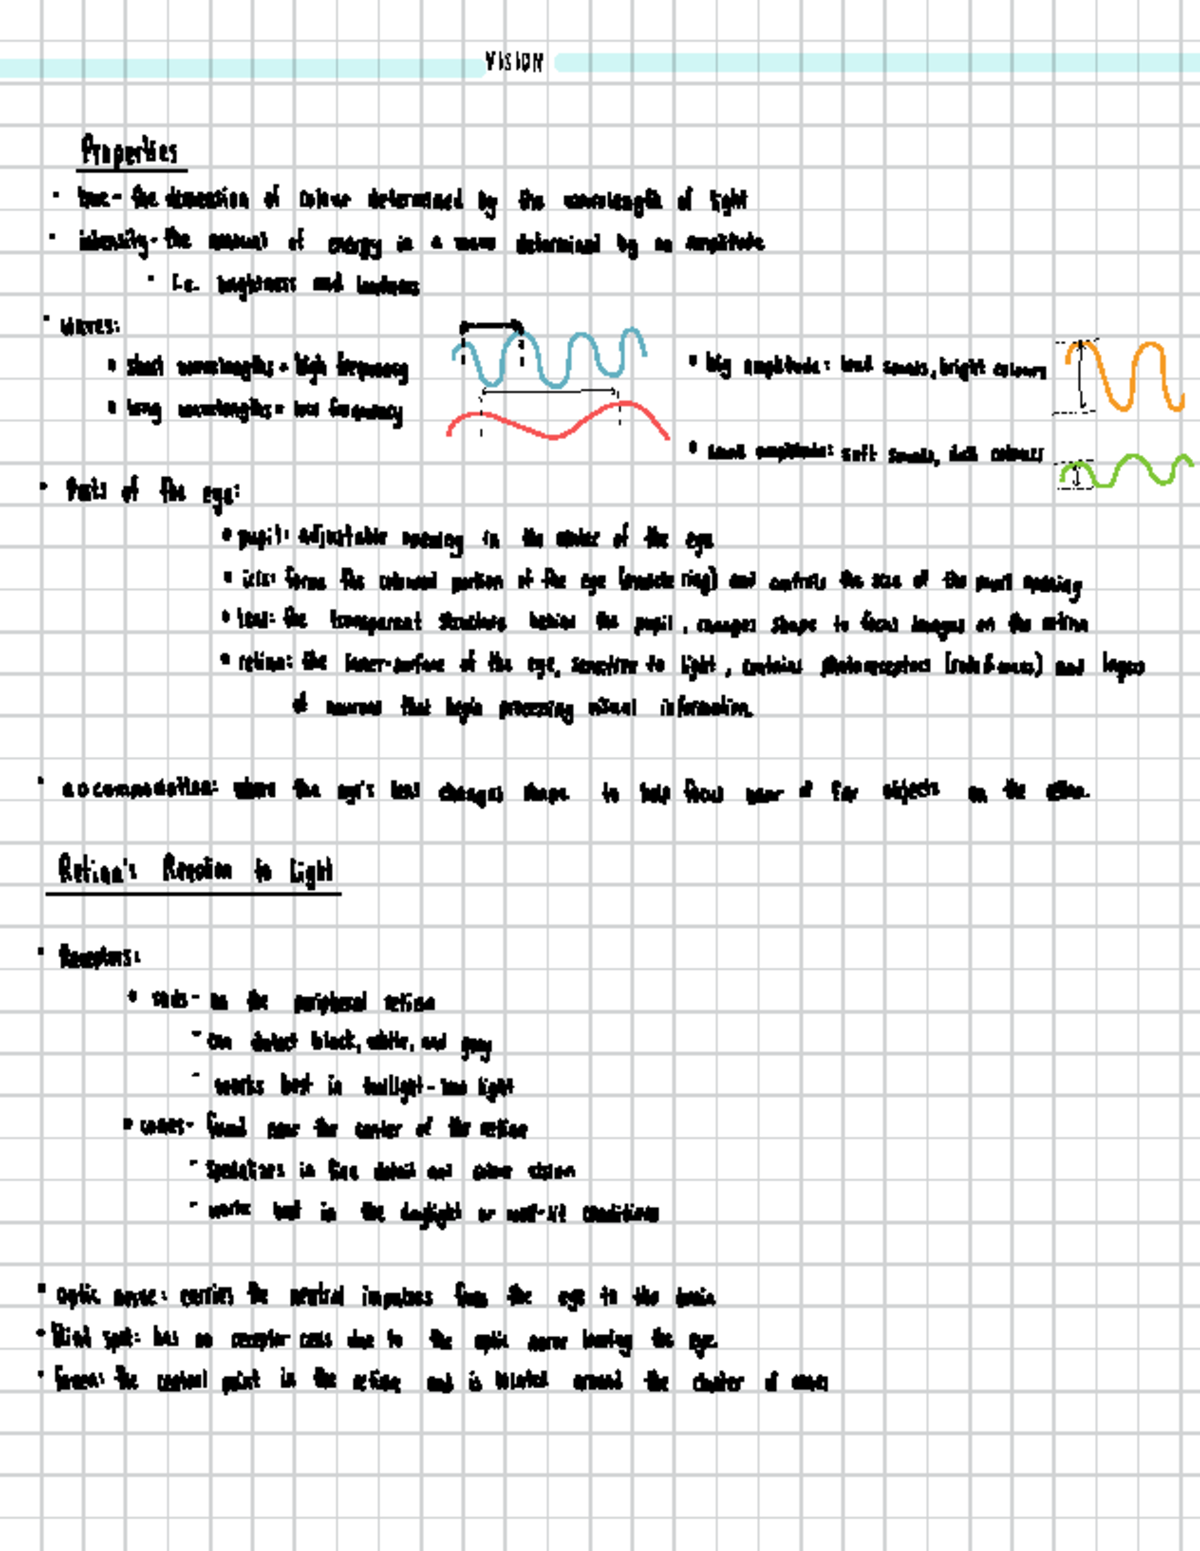 VISION
Properties
· hue - the dimension of colour determined by the wavelength of light
· intensity - the amount of energy in a wave determined by an amplitude
· I.e. brightness and loudness
· Waves:
• short wavelengths = high frequency
• big amplitude: loud sounds, bright colours
• long wavelengths = low frequency
• small amplitude: soft sounds, dull colours
· Parts of the eye:
• pupil: adjustable opening in the center of the eye
• iris: forms the coloured portion of the eye (muscle ring) and controls the size of the pupil opening
• lens: the transparent structure behind the pupil, changes shape to focus images on the retina
• retina: the inner-surface of the eye, sensitive to light, contains photoreceptors (rods & cones) and layers
of neurons that begin processing visual information.
· accommodation: where the eye's lens changes shape to help focus near or far objects on the retina.
Retina's Reaction to Light
· Receptors:
• rods - on the peripheral retina
- can detect black, white, and gray
- works best in twilight - low light
• cones - found near the center of the retina
- specializes in fine detail and colour vision
- works best in the daylight or well-lit conditions
· optic nerve: carries the neutral impulses from the eye to the brain
· Blind spot: has no receptor cells due to the optic nerve leaving the eye.
· fovea: the central point in the retina and is located around the cluster of cones